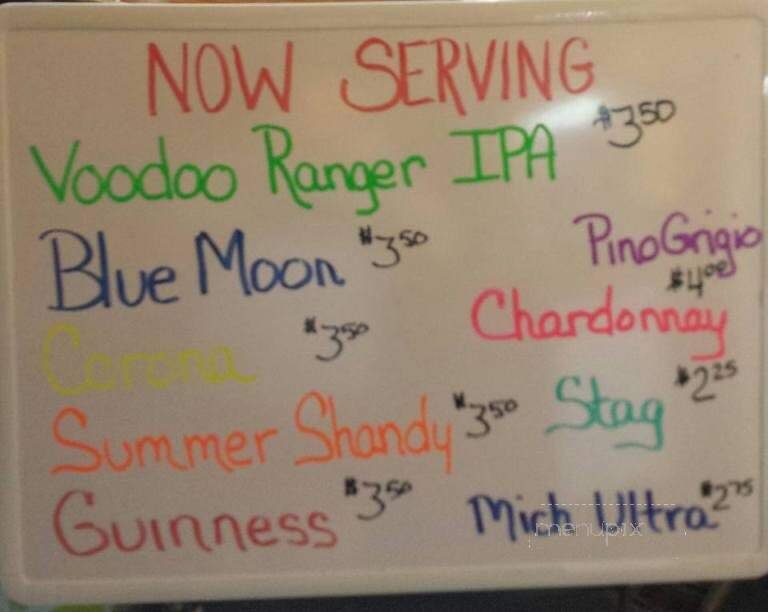 NOW SERVING
Voodoo Ranger IPA $3.50
Blue Moon $3.50
Pino Grigio
$4.00
Corona $3.50
Chardonnay
Summer Shandy $3.50
Stag $2.25
Guinness $3.50
Mich Ultra $2.75
menupix